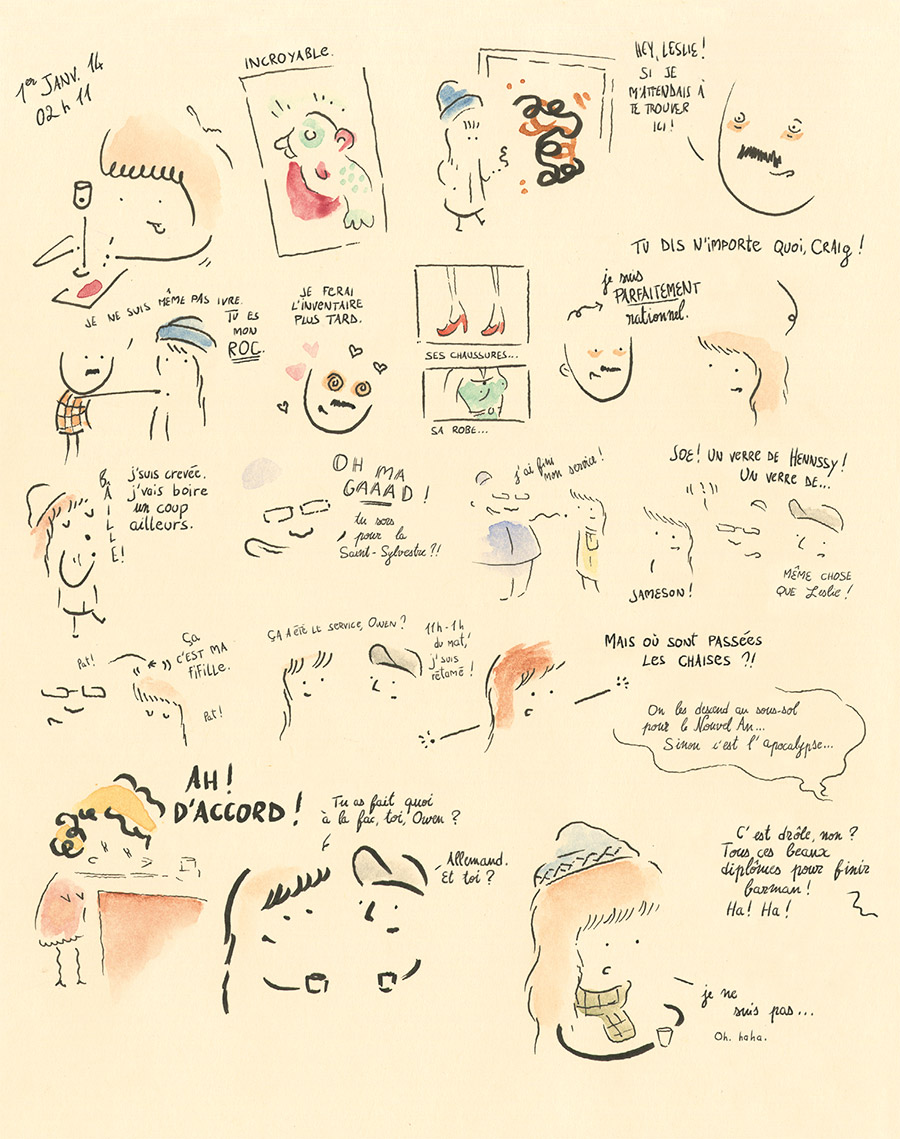 1er JANV. 14
02 h 11
INCROYABLE.
HEY, LESLIE!
SI JE
M'ATTENDAIS À
TE TROUVER
ICI!
TU DIS N'IMPORTE QUOI, CRAIG!
JE NE SUIS MÊME PAS IVRE.
TU ES
MON
ROC.
JE FERAI
L'INVENTAIRE
PLUS TARD.
SES CHAUSSURES...
SA ROBE...
je suis
PARFAITEMENT
rationnel.
BAILLE!
j'suis crevée.
j'vais boire
un coup
ailleurs.
OH MA
GAAAD!
tu sors
pour la
Saint-Sylvestre?!
j'ai fini
mon service!
JOE! UN VERRE DE HENNSSY!
UN VERRE DE...
JAMESON!
MÊME CHOSE
QUE Leslie!
Pat!
Ça
C'EST MA
FIFILLE.
Pat!
ÇA A ÉTÉ LE SERVICE, OWEN?
11h-1h
du mat,'
j'suis
rétamé!
MAIS OÙ SONT PASSÉES
LES CHAISES?!
On les descend au sous-sol
pour le Nouvel An...
Sinon c'est l'apocalypse...
AH!
D'ACCORD!
Tu as fait quoi
à la fac, toi, Owen?
Allemand.
Et toi?
C'est drôle, non?
Tous ces beaux
diplômes pour finir
barman!
Ha! Ha!
je ne
suis pas...
Oh. haha.